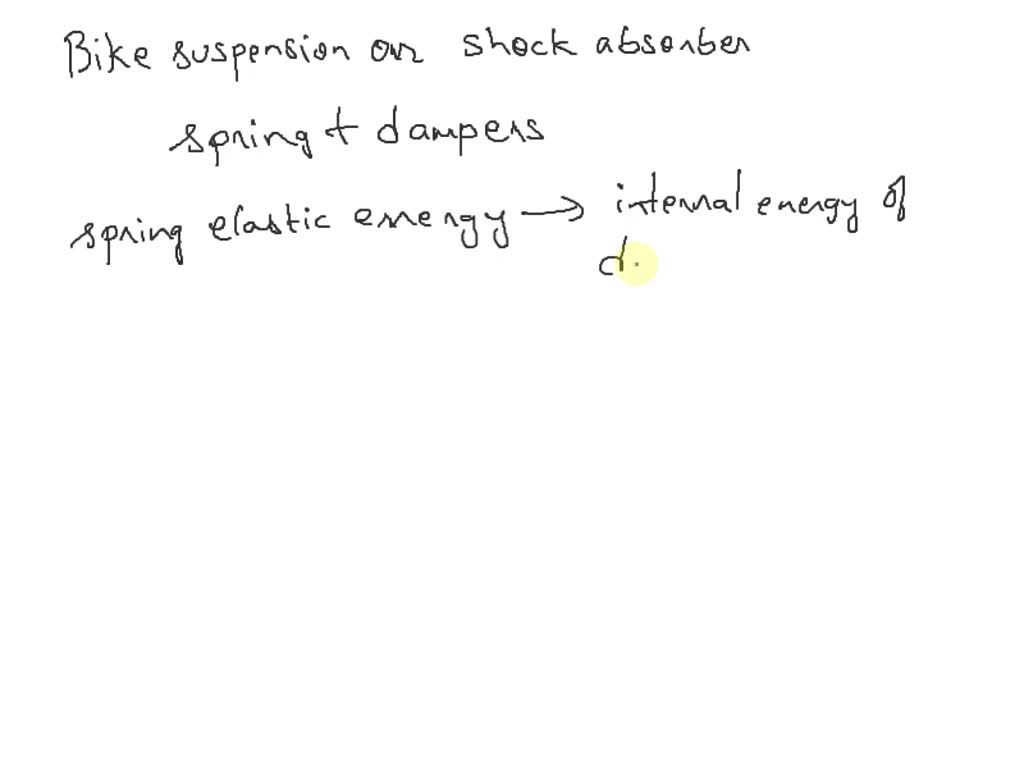 Bike suspension or shock absorber
spring + dampers
spring elastic energy → internal energy of
d